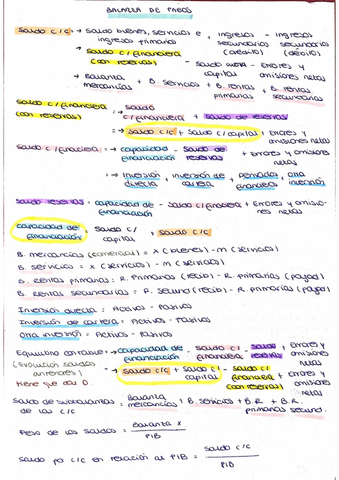 BALANZA DE PAGOS
Saldo c/c → saldo bienes, servicios e ingresos primarios + ingresos secundarios (crédito) - ingresos secundarios (débito)
→ saldo c/financiera (con reservas) - saldo capital - Errores y omisiones netos
→ Balanza mercancías + B. servicios + B. rentas primarias + B. rentas secundarias
Saldo c/financiera (con reservas) → saldo c/financiera + saldo de reservas
→ saldo c/c + saldo c/capital + Errores y omisiones netos
Saldo c/financiera → capacidad de financiación - saldo de reservas + Errores y omisiones netos
→ Inversión directa + inversión de cartera + derivados financieros + otra inversión
Saldo reservas = capacidad de financiación - saldo c/financiera + Errores y omisiones netos
Capacidad de financiación = saldo c/capital + saldo c/c
B. mercancías (comercial) = x (bienes) - m (servicios)
B. servicios = x (servicios) - m (servicios)
B. Rentas primarias: R. Primarias (recib) - R. primarias (pagad)
B. Rentas secundarias = R. Secund (recib) - R. primarias (pagad)
Inversión directa = Activos - Pasivos
Inversión de cartera = Activos - Pasivos
Otra inversión = Activos - Pasivos
Equilibrio contable → capacidad de financiación - saldo c/financiera - saldo reservas + Errores y omisiones netos
(Evolución saldos anteriores) → saldo c/c + saldo c/capital - saldo c/financiera (con reservas) + Errores y omisiones netos
Tiene que dar 0
Saldo de subbalanzas de las c/c = Balanza mercancías + B. servicios + B.R primarias + B.R secund.
Peso de los saldos = Balanza x / PIB
Saldo por c/c en relación al PIB = saldo c/c / PIB